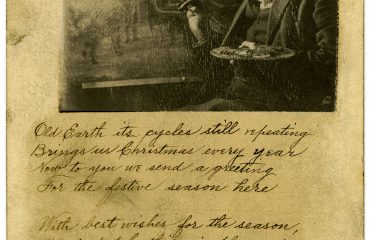 Old Earth its cycles still repeating
Brings us Christmas every year
Now to you we send a greeting
For the festive season here
With best wishes for the season,